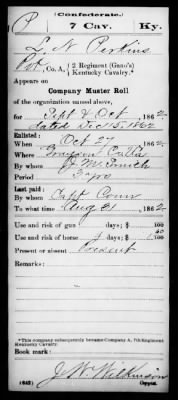 (Confederate.)
P 7 Cav. Ky.
L. N. Perkins
Pvt, Co. A, { 2 Regiment (Gano's) Kentucky Cavalry.*
Appears on
Company Muster Roll
of the organization named above,
for Sept & Oct, 1862.
dated Dec 15, 1862
Enlisted:
When Oct 27, 1862.
Where Grayson Co Va
By whom J W Smith
Period 3 yrs
Last paid:
By whom Capt Conn
To what time Aug 31, 1862.
Use and risk of gun days; $ 100
Use and risk of horse days; $ 100
Present or absent Present
Remarks:
*This company subsequently became Company A, 7th Regiment Kentucky Cavalry.
Book mark:
J. W. Wilkinson
(642) Copyist.